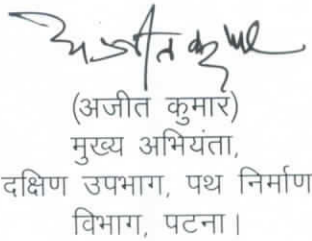 अजीत कुमार
(अजीत कुमार)
मुख्य अभियंता,
दक्षिण उपभाग, पथ निर्माण
विभाग, पटना।